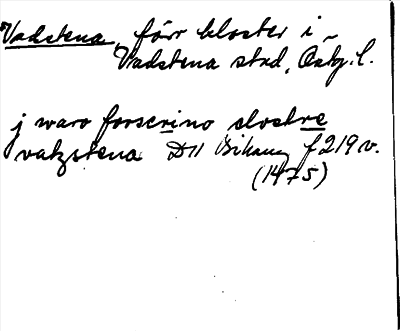 Vadstena, förr kloster i
Vadstena stad, Östg. l.
j waro forscrino clostre
vatzstena D11 Bihang f 219 v.
(1475)